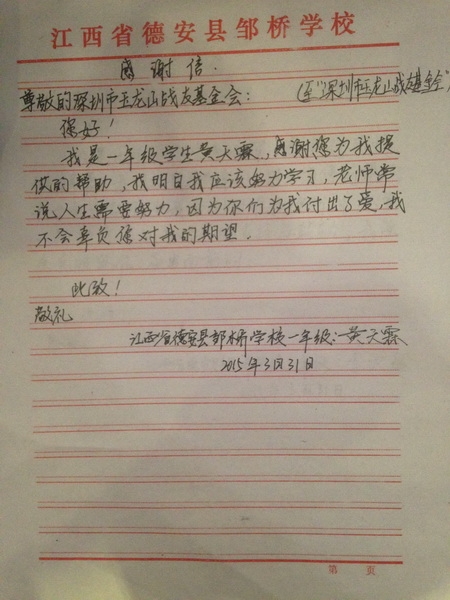 江西省德安县邹桥学校
感谢信.
尊敬的深圳市玉龙山战友基金会: (至"深圳市玉龙山战友基金会"
您好!
我是一年级学生黄天霖,感谢您为我提
供的帮助,我明白我应该努力学习,老师常
说人生需要努力,因为你们为我付出了爱,我
不会辜负您对我的期望.
此致!
敬礼
江西省德安县邹桥学校一年级:黄天霖
2015年3月31日
第 页